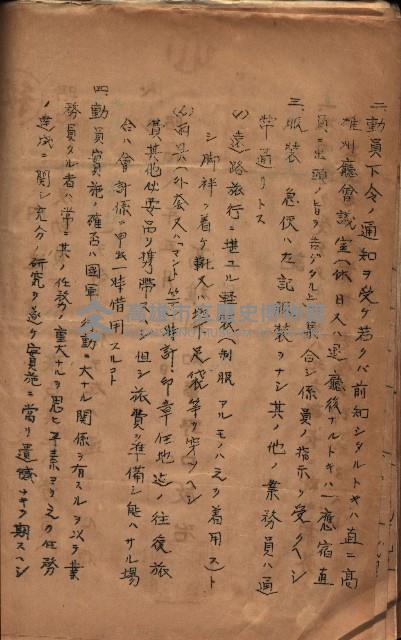 二、動員下令ノ通知ヲ受ケ若クハ前知シタルトキハ直ニ高
雄州廳會議室(休日又ハ退廳後ナルトキハ一應宿直
員ニ出頭ノ旨ヲ告ゲタル上)ニ集合シ係員ノ指示ヲ受クヘシ
三、服装 急使ハ左記服装ヲナシ其ノ他ノ業務員ハ通
常通リトス
(イ)遠路旅行ニ堪エル軽装(制服アルモノハ之ヲ着用ス)ト
シ脚袢ヲ着ケ靴又ハ草足袋等ヲ穿ツヘシ
(ロ)雨具(外套又ハ「マント」等)時計、印章、任地迄ノ往復旅
費其他必要品ヲ携帯ス 但シ旅費ヲ準備シ能ハサル場
合ハ會計係ヨリ一時借用スルコト
四、動員實施ノ確否ハ國軍ノ動ニ大ナル関係ヲ有スルヲ以テ業
務員タル者ハ常ニ其ノ任務ノ重大ナルヲ思ヒ平素ヨリ之カ任務
ノ達成ニ関シ充分ノ研究ヲ遂ケ實施ニ當リ遺憾ナキヲ期スヘシ
高雄市立歷史博物館